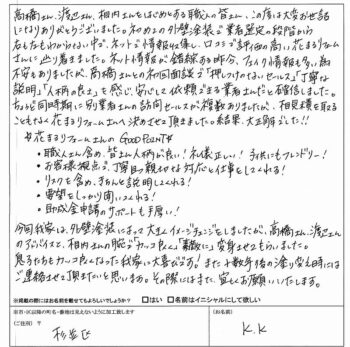 高橋さん、渡辺さん、相内さんをはじめとする職人の皆さん、この度は大変お世話
になりありがとうございました。初めての外壁塗装で業者選定の段階から
右も左もわからない中で、ネットで情報収集し、口コミで評価の高い花まるリフォーム
さんに辿り着きました。ネット情報が錯綜する昨今、フェイク情報も多い為
不安もありましたが、高橋さんとの初回面談で「押しつけのないセールス」「丁寧な
説明」「人柄の良さ」を感じ、安心して依頼できる業者さんだと確信しました。
ちなみに同時期に別業者さんの訪問セールスが複数ありましたが、相見積を取る
ことなく花まるリフォームさんへ決めさせて頂きました。結果、大正解でした!!
☆花まるリフォームさんのGOOD POINT☆
・職人さん含め、皆さん人柄が良い!礼儀正しい!子供にもフレンドリー!
・お客様視点で、丁寧且つ親切な対応と仕事をしてくれる!
・リスクを含め、きちんと説明してくれる!
・要望をしっかり聞いてくれる!
・助成金申請のサポートも手厚い!
今回我家は、外壁塗装によって大きくイメージチェンジをしましたが、高橋さん、渡辺さん
のアドバイスと、相内さんの腕で「カッコ良く」「素敵に」変身させてもらいました。
息子たちもカッコ良くなった我家に大喜びです!また十数年後の塗り変え時には
ご連絡させて頂きたいと思います。その際にはまた、宜しくお願いいたします。
※掲載の際にはお名前を載せてもよろしいでしょうか? □はい □名前はイニシャルにして欲しい
※市・区以降の町名・番地は見えないように加工致します
(ご住所) 〒 杉並区
(お名前) K.K